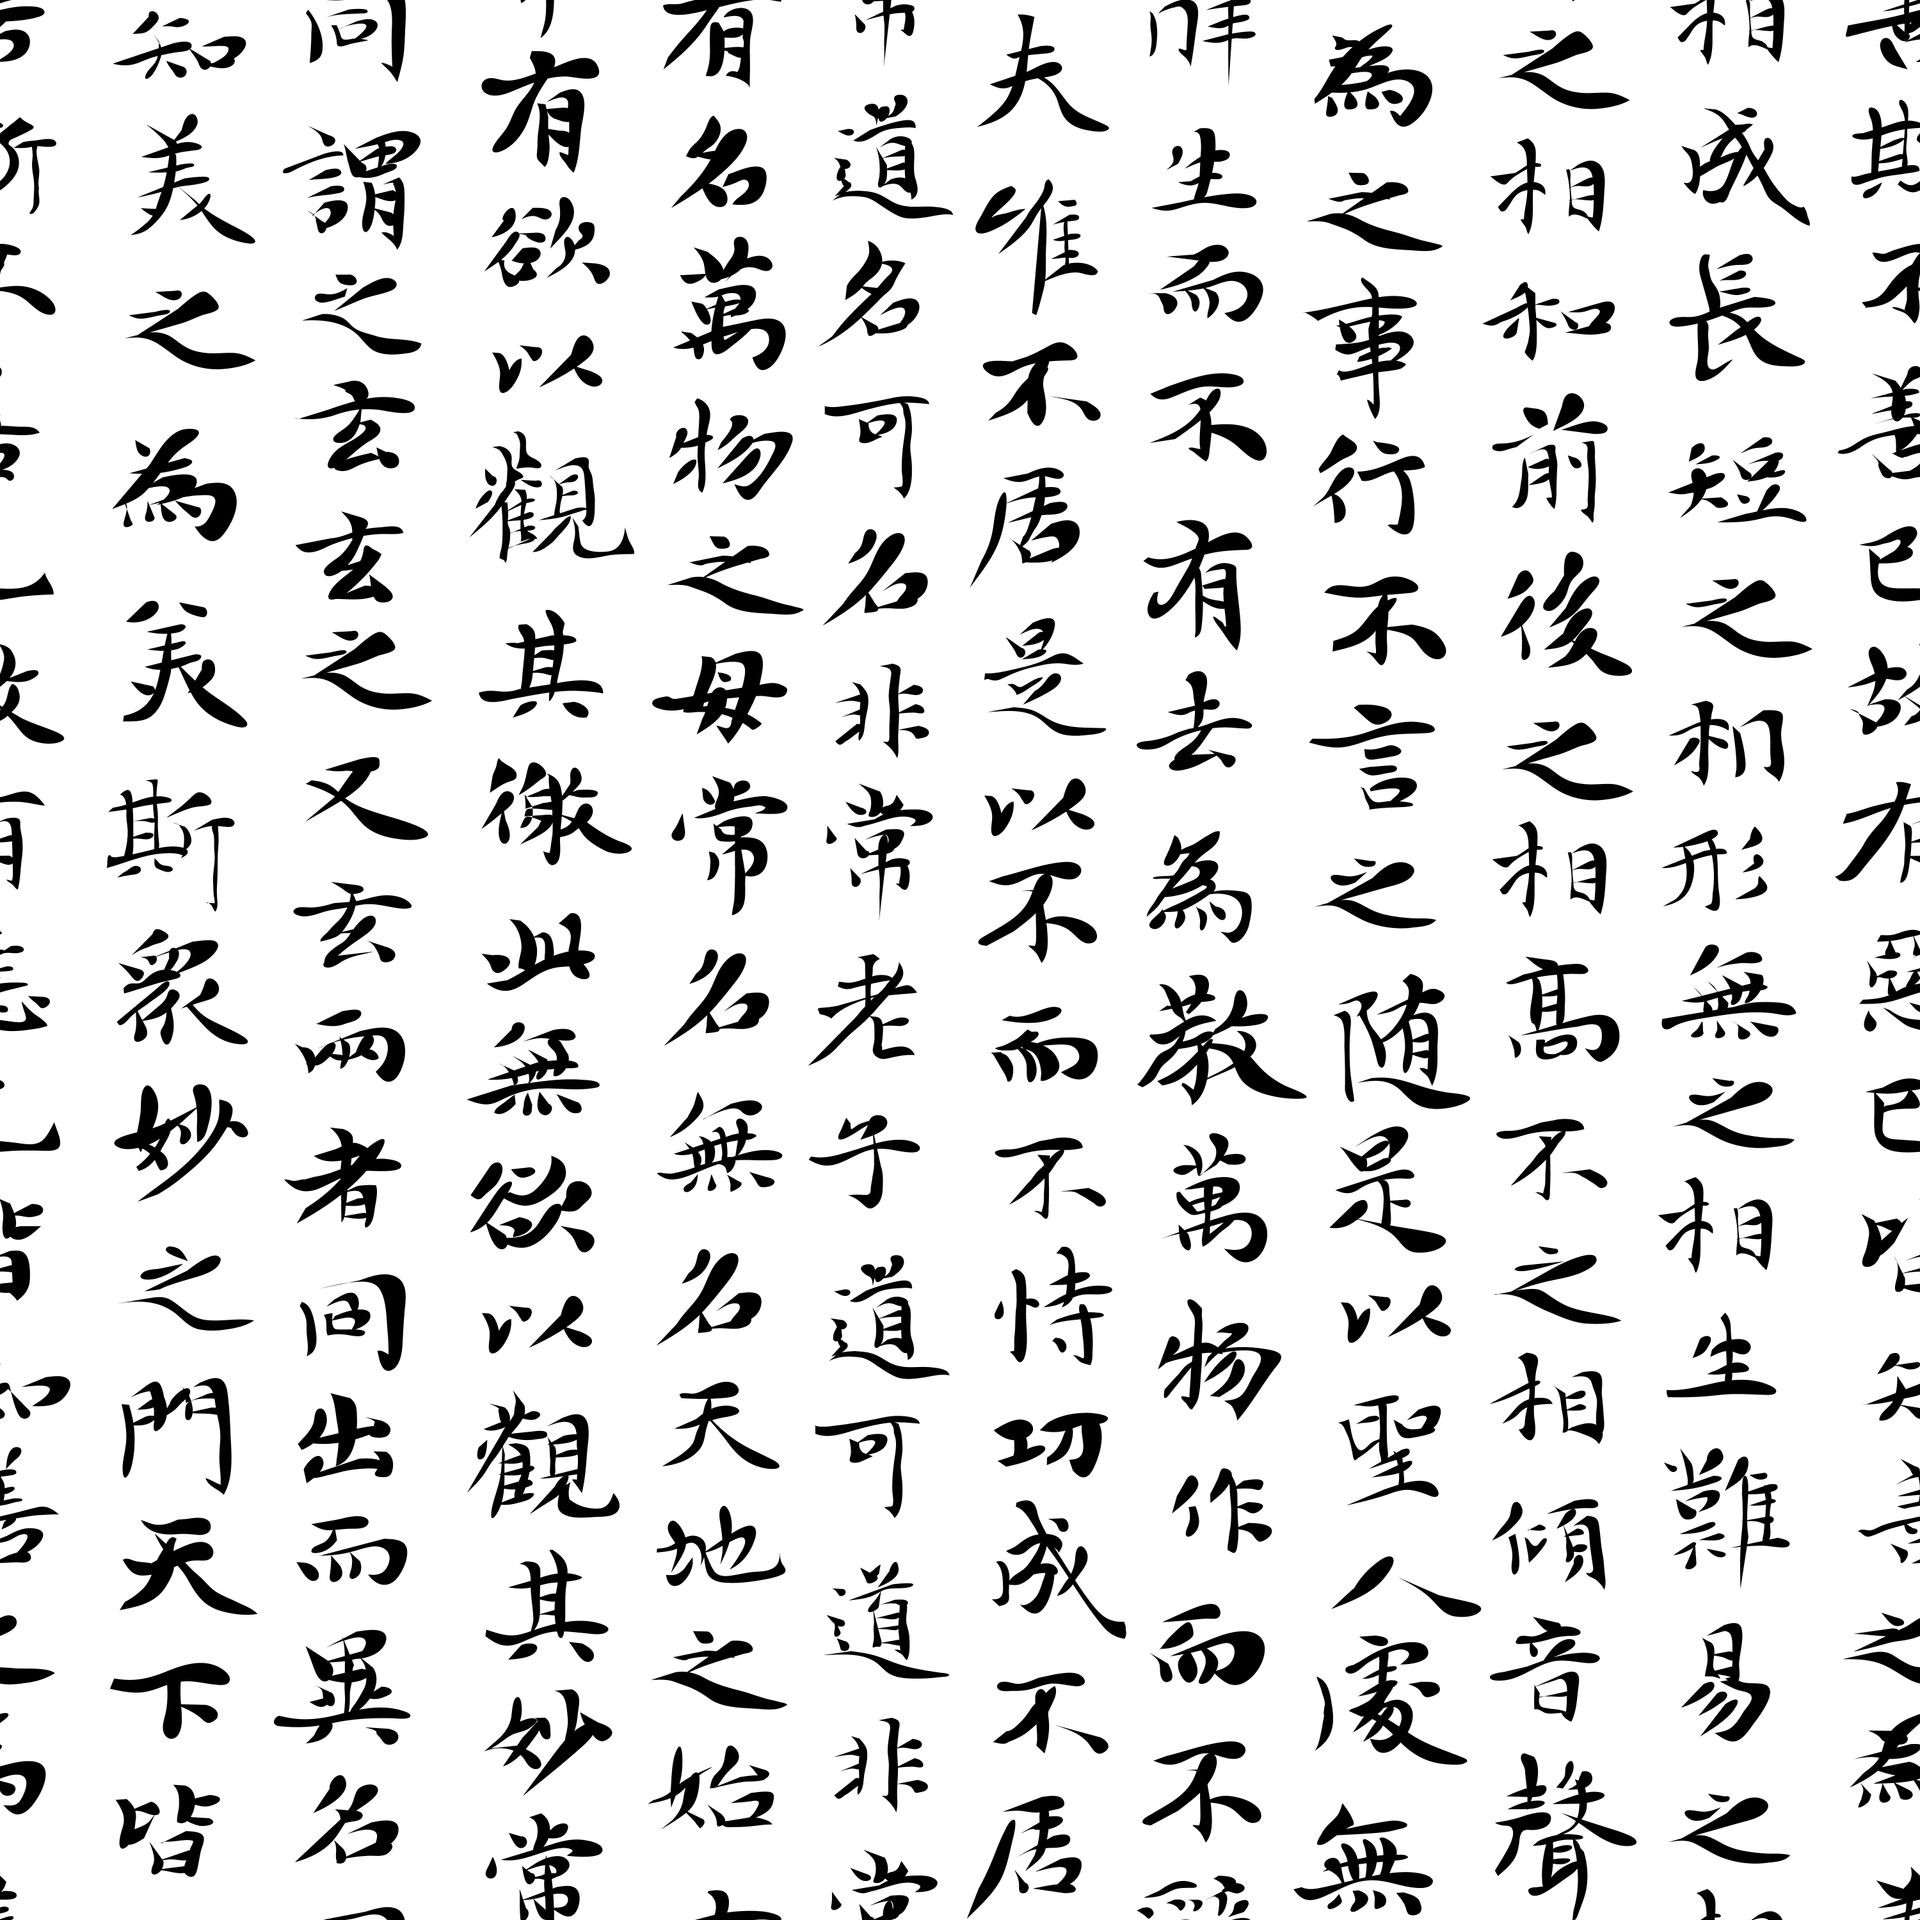 成長短之相形無之相生難易之
之相和前後之相高不之相傾音聲
為之事行不言之随是以聖人處無
生而不有去為教萬物作而不
夫唯不居是以不而不恃功成不居
道名可名非常老子道可道非常
有名萬物之母常名無名天地之始
有欲以觀其徼此無欲以觀其妙常
同謂之玄玄之又玄兩者同出而異名
知美之為美斯衆妙之門天下皆